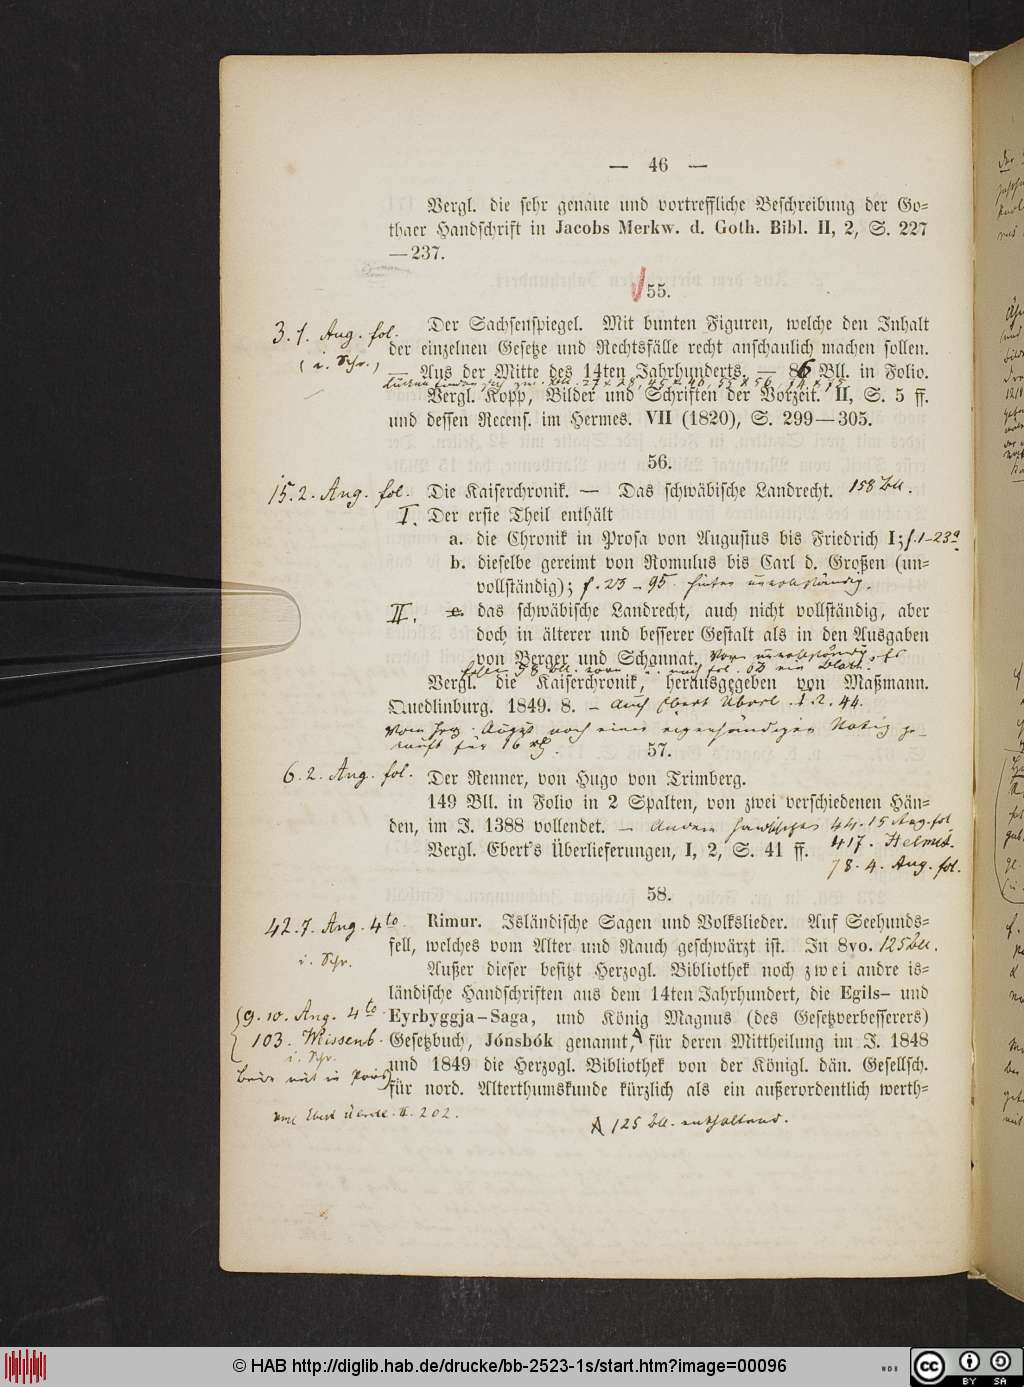 — 46 —
Vergl. die sehr genaue und vortreffliche Beschreibung der Go=
thaer Handschrift in Jacobs Merkw. d. Goth. Bibl. II, 2, S. 227
—237.
55.
3. 1. Aug. fol.
Der Sachsenspiegel. Mit bunten Figuren, welche den Inhalt
der einzelnen Gesetze und Rechtsfälle recht anschaulich machen sollen.
(i. Schr.)
— Aus der Mitte des 14ten Jahrhunderts. — 86 Bll. in Folio.
Vergl. Kopp, Bilder und Schriften der Vorzeit. II, S. 5 ff.
und dessen Recens. im Hermes. VII (1820), S. 299—305.
56.
15. 2. Aug. fol.
Die Kaiserchronik. — Das schwäbische Landrecht. 158 Bll.
I. Der erste Theil enthält
a. die Chronik in Prosa von Augustus bis Friedrich I; f. 1–23a.
b. dieselbe gereimt von Romulus bis Carl d. Großen (un=
vollständig); f. 23–95. hinten unvollständig.
II. c. das schwäbische Landrecht, auch nicht vollständig, aber
doch in älterer und besserer Gestalt als in den Ausgaben
von Berger und Schannat. Vorn unvollständig, es
fehlen 58 Bll. vorn u. nach fol. ein Blatt.
Vergl. die Kaiserchronik, herausgegeben von Maßmann.
Quedlinburg. 1849. 8. – Auch Ebert Überl. 1. 2. 44.
Vom Hrz. August nach einer eigenhändigen Notiz ge–
kauft für 16
57.
6. 2. Aug. fol.
Der Renner, von Hugo von Trimberg.
149 Bll. in Folio in 2 Spalten, von zwei verschiedenen Hän=
den, im J. 1388 vollendet. – Andere 44. 15 Aug. fol
Vergl. Ebert's Überlieferungen, I, 2, S. 41 ff. 417. Helmst.
78. 4. Aug. fol.
58.
42. 7. Aug. 4to
Rimur. Isländische Sagen und Volkslieder. Auf Seehunds=
fell, welches vom Alter und Rauch geschwärzt ist. In 8vo. 125 Bll.
i. Schr.
Außer dieser besitzt Herzogl. Bibliothek noch zwei andre is=
ländische Handschriften aus dem 14ten Jahrhundert, die Egils- und
9. 10. Aug. 4to
Eyrbyggja-Saga, und König Magnus (des Gesetzverbesserers)
103. Wissenb.
Gesetzbuch, Jónsbók genannt, A für deren Mittheilung im J. 1848
i. Schr.
und 1849 die Herzogl. Bibliothek von der Königl. dän. Gesellsch.
für nord. Alterthumskunde kürzlich als ein außerordentlich werth=
Ebert Überl. II. 202.
A 125 Bll. enthaltend.
© HAB http://diglib.hab.de/drucke/bb-2523-1s/start.htm?image=00096
WDB
cc BY SA